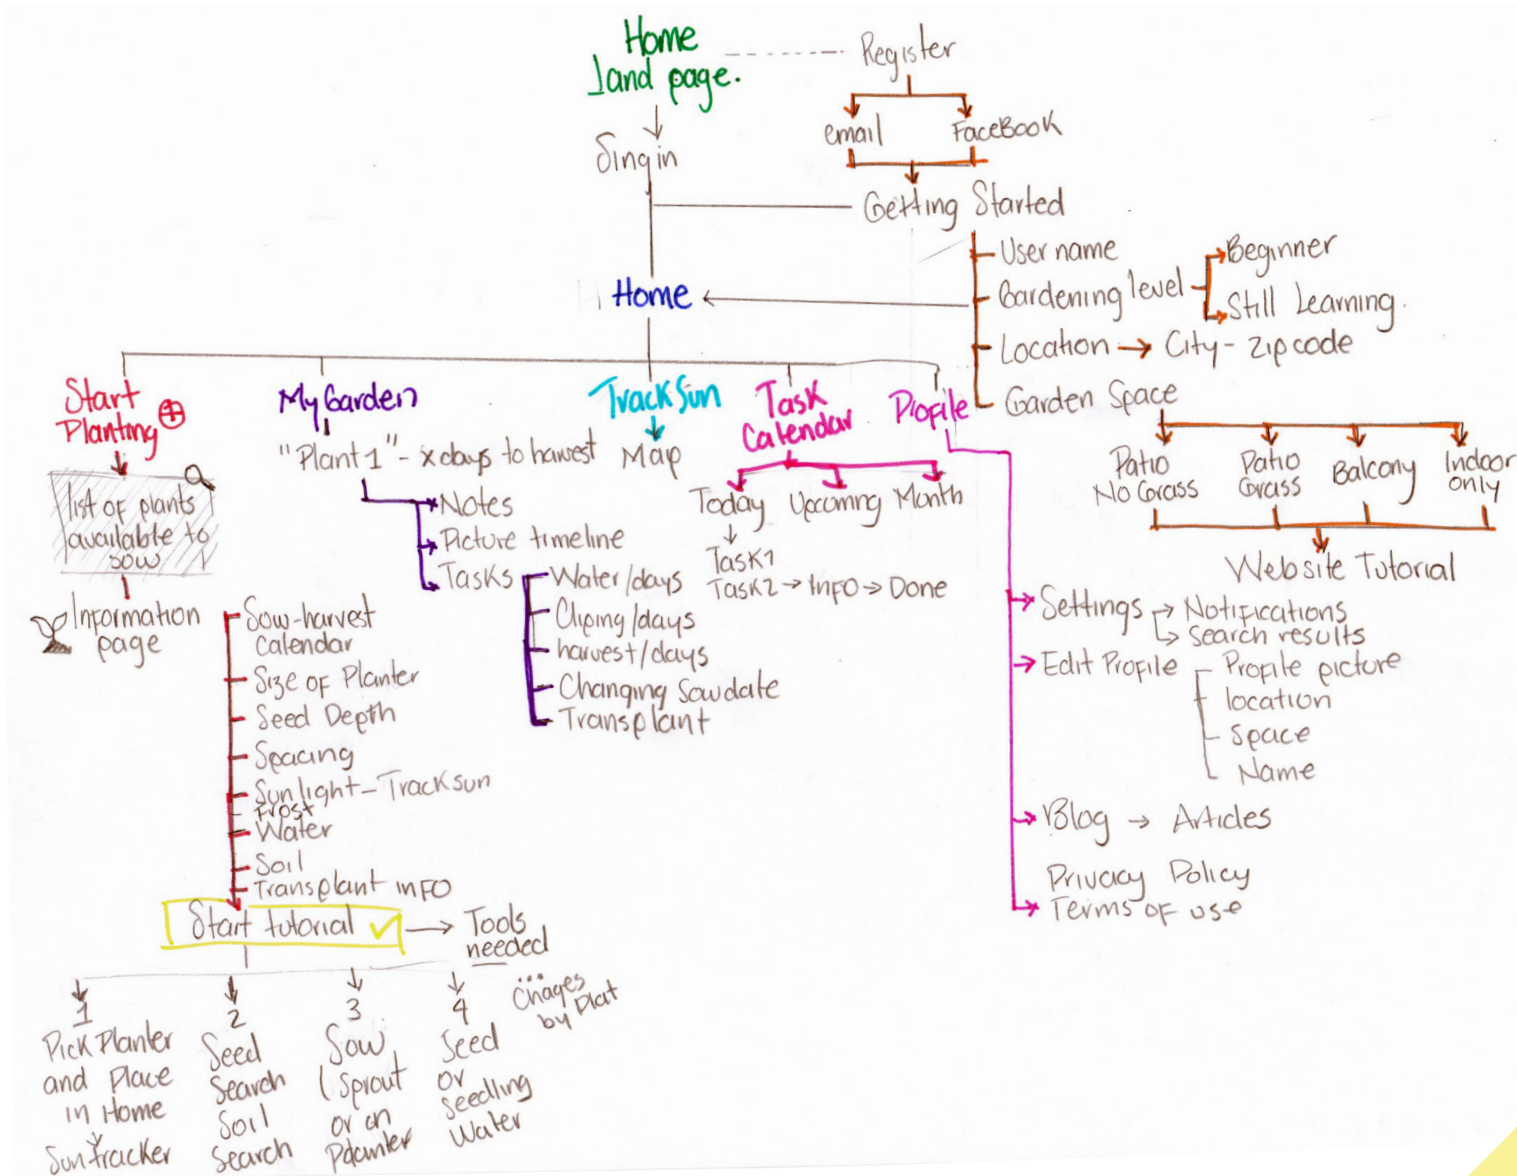 Home
land page.
Register
email
FaceBook
Singin
Getting Started
User name
Gardening level
Beginner
Still Learning.
Location → City - Zip code
Garden Space
Patio
No Grass
Patio
Grass
Balcony
Indoor
only
Website Tutorial
Home
Start
Planting
My Garden
Track Sun
Task
Calendar
Profile
list of plants
available to
sow
Information
page
Sow-harvest
Calendar
Size of Planter
Seed Depth
Spacing
Sunlight - Track sun
Frost
Water
Soil
Transplant INFO
Start tutorial
→ Tools
needed
1
Pick Planter
and Place
in Home
Sun tracker
2
Seed
Search
Soil
Search
3
Sow
(Sprout
or on
4
Seed
or
seedling
Water
...
Chages
by Plat
"Plant 1" - x days to harvest
Notes
Picture timeline
Tasks
Water/days
Cliping/days
harvest/days
Changing Sow date
Transplant
Map
Today
Upcoming
Month
Task1
Task2 → INFO → Done
Settings
Notifications
Search results
Edit Profile
Profile picture
location
Space
Name
Blog → Articles
Privacy Policy
Terms of use